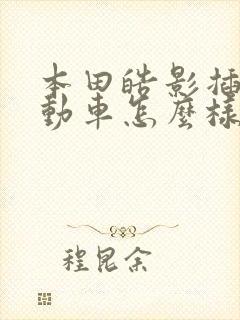 本田皓影插
動車怎麼樣
程昆余